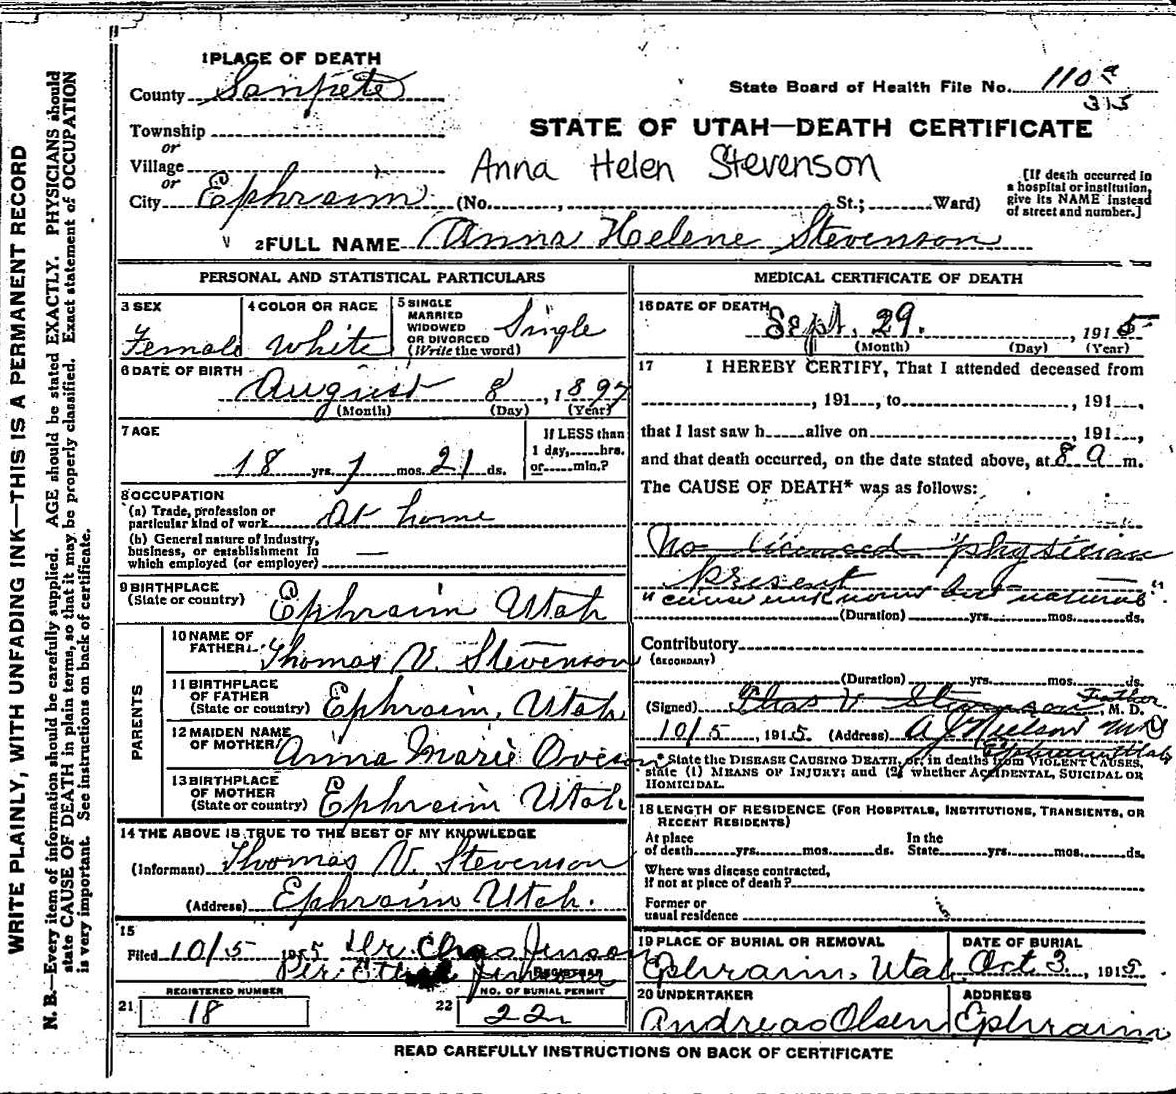 WRITE PLAINLY, WITH UNFADING INK—THIS IS A PERMANENT RECORD
N. B.—Every item of information should be carefully supplied. AGE should be stated EXACTLY. PHYSICIANS should
state CAUSE OF DEATH in plain terms, so that it may be properly classified. Exact statement of OCCUPATION
is very important. See instructions on back of certificate.
1 PLACE OF DEATH
County Sanpete
State Board of Health File No. 110 a
315
Township
or
Village
or
City Ephraim
STATE OF UTAH—DEATH CERTIFICATE
Anna Helen Stevenson
(No. , St.; Ward)
[If death occurred in
a hospital or institution,
give its NAME instead
of street and number.]
2 FULL NAME Anna Helene Stevenson
PERSONAL AND STATISTICAL PARTICULARS
3 SEX
Female
4 COLOR OR RACE
White
5 SINGLE
MARRIED
WIDOWED
OR DIVORCED
(Write the word)
Single
6 DATE OF BIRTH
August 8, 1897
(Month) (Day) (Year)
7 AGE
18 yrs. 1 mos. 21 ds.
If LESS than
1 day, hrs.
or min.?
8 OCCUPATION
(a) Trade, profession or
particular kind of work At home
(b) General nature of industry,
business, or establishment in
which employed (or employer) —
9 BIRTHPLACE
(State or country) Ephraim Utah
PARENTS
10 NAME OF
FATHER Thomas V. Stevenson
11 BIRTHPLACE
OF FATHER
(State or country) Ephraim, Utah
12 MAIDEN NAME
OF MOTHER Anna Marie Oveson
13 BIRTHPLACE
OF MOTHER
(State or country) Ephraim Utah
14 THE ABOVE IS TRUE TO THE BEST OF MY KNOWLEDGE
(Informant) Thomas V. Stevenson
(Address) Ephraim Utah.
15
Filed 10/5 1915 Dr Chas Jenson
Per
REGISTRAR
REGISTERED NUMBER
21 18
NO. OF BURIAL PERMIT
22 22
MEDICAL CERTIFICATE OF DEATH
16 DATE OF DEATH
Sept. 29. , 1915
(Month) (Day) (Year)
17 I HEREBY CERTIFY, That I attended deceased from
, 191 , to , 191 ,
that I last saw h alive on , 191 ,
and that death occurred, on the date stated above, at 8 a m.
The CAUSE OF DEATH* was as follows:
No licensed physician
present
"cause unknown but natural".
(Duration) yrs. mos. ds.
Contributory
(SECONDARY)
(Duration) yrs. mos. ds.
(Signed) Thos V Stevenson Father, M. D.
10/5, 1915 (Address) A J Nielson MD
Ephraim Utah
* State the DISEASE CAUSING DEATH, or, in deaths from VIOLENT CAUSES,
state (1) MEANS OF INJURY; and (2) whether ACCIDENTAL, SUICIDAL OR
HOMICIDAL.
18 LENGTH OF RESIDENCE (FOR HOSPITALS, INSTITUTIONS, TRANSIENTS, OR
RECENT RESIDENTS)
At place
of death yrs. mos. ds.
In the
State yrs. mos. ds.
Where was disease contracted,
if not at place of death?
Former or
usual residence
19 PLACE OF BURIAL OR REMOVAL
Ephraim, Utah
DATE OF BURIAL
Oct 3, 1915
20 UNDERTAKER
Andreas Olsen
ADDRESS
Ephraim
READ CAREFULLY INSTRUCTIONS ON BACK OF CERTIFICATE